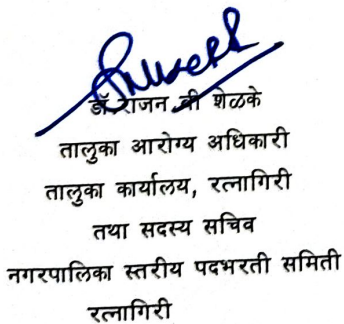 डॉ. राजन बी शेळके
तालुका आरोग्य अधिकारी
तालुका कार्यालय, रत्नागिरी
तथा सदस्य सचिव
नगरपालिका स्तरीय पदभरती समिती
रत्नागिरी